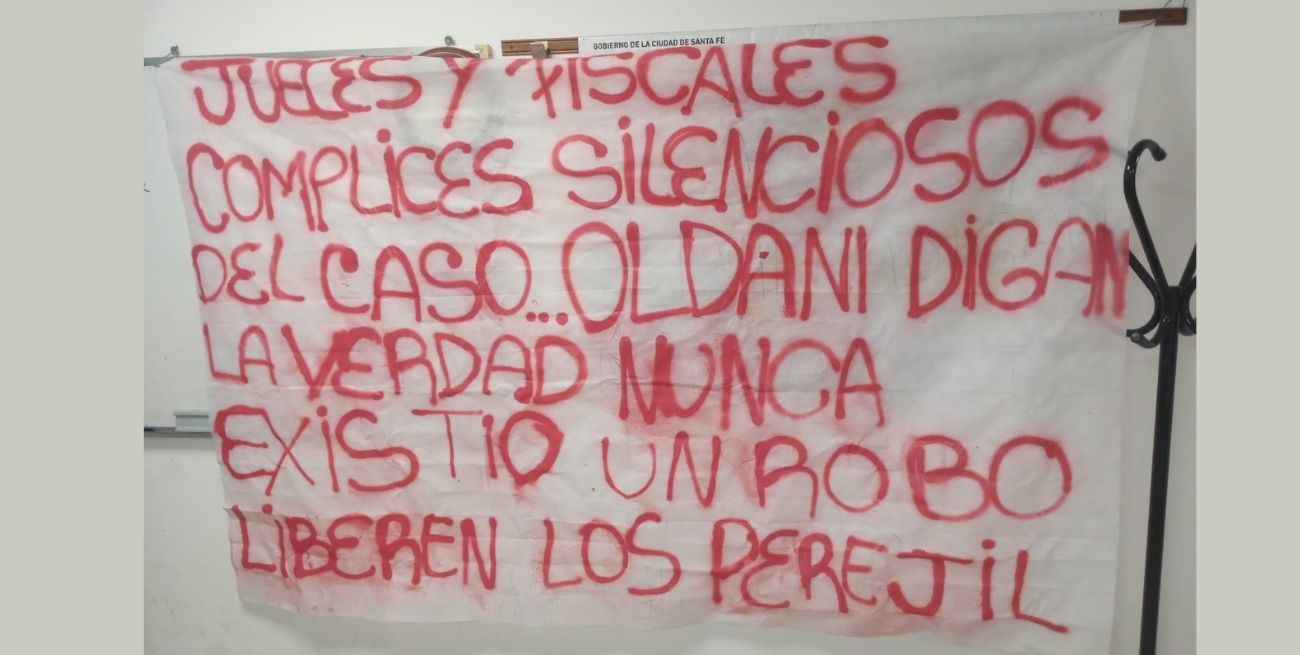 GOBIERNO DE LA CIUDAD DE SANTA FE
JUECES Y FISCALES
COMPLiCES SiLENCiOSOS
DEL CASO...OLDANI DiGAN
LA VERDAD NUNCA
EXiSTiO UN ROBO
LiBEREN LOS PEREJiL